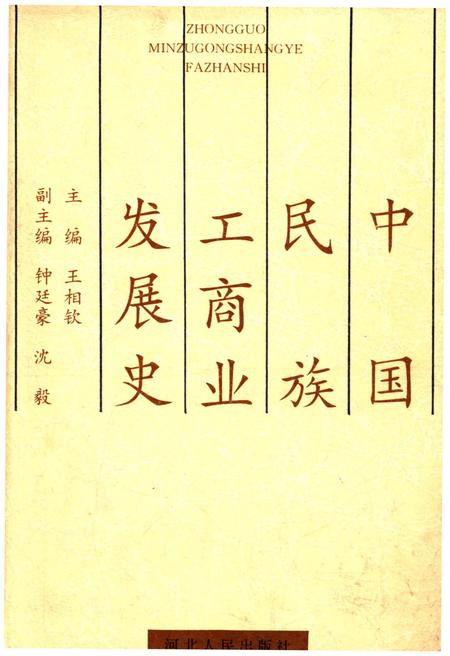 ZHONGGUO
MINZUGONGSHANGYE
FAZHANSHI
中国
民族
工商业
发展史
主编 王相钦
副主编 钟廷豪 沈毅
河北人民出版社